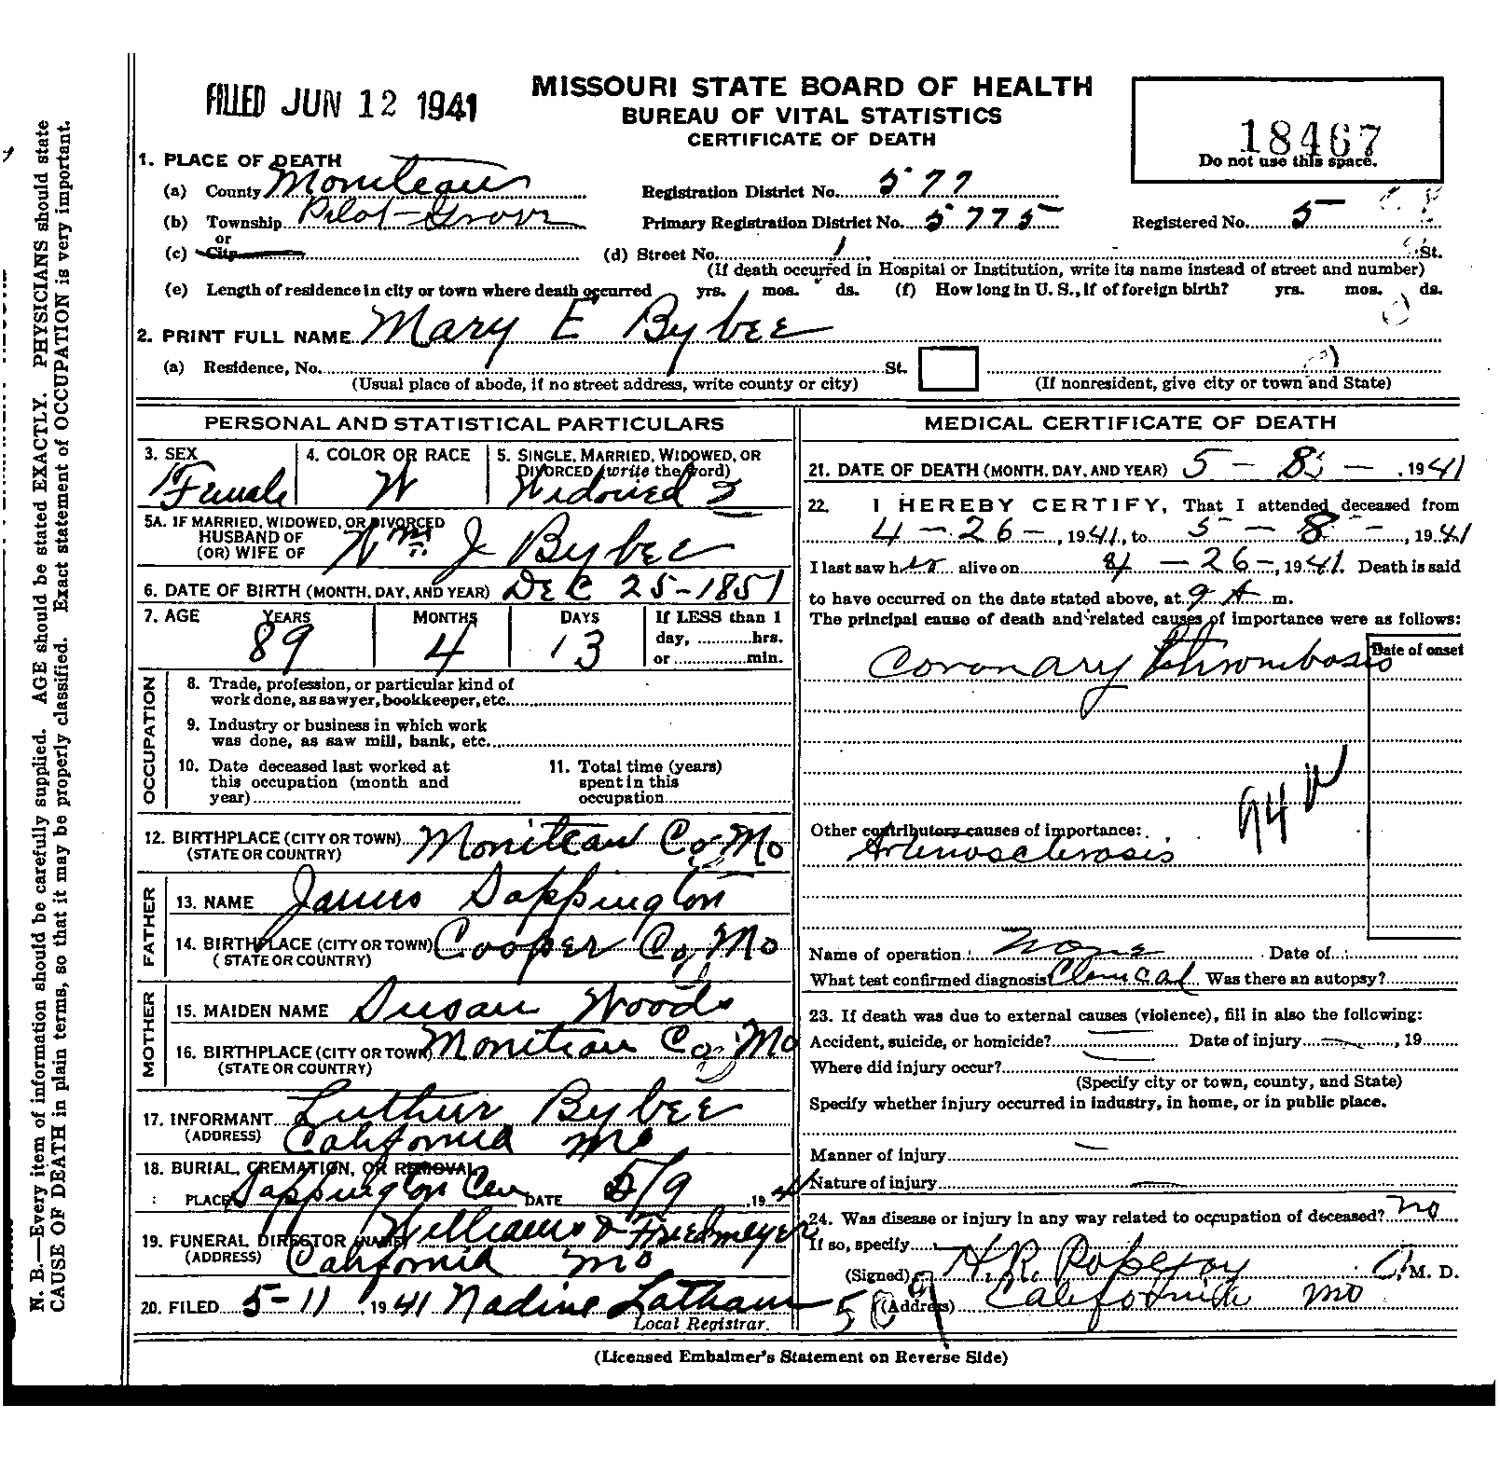 FILED JUN 12 1941
MISSOURI STATE BOARD OF HEALTH
BUREAU OF VITAL STATISTICS
CERTIFICATE OF DEATH
18467
Do not use this space.
1. PLACE OF DEATH
(a) County Moniteau Registration District No. 577
(b) Township Pilot-Grove Primary Registration District No. 5775 Registered No. 5
or
(c) City (d) Street No. St.
(If death occurred in Hospital or Institution, write its name instead of street and number)
(e) Length of residence in city or town where death occurred yrs. mos. ds. (f) How long in U. S., if of foreign birth? yrs. mos. ds.
2. PRINT FULL NAME Mary E Bybee
(a) Residence, No. St.
(Usual place of abode, if no street address, write county or city) (If nonresident, give city or town and State)
PERSONAL AND STATISTICAL PARTICULARS
3. SEX Female
4. COLOR OR RACE W
5. SINGLE, MARRIED, WIDOWED, OR
DIVORCED (write the word)
Widowed 2
5A. IF MARRIED, WIDOWED, OR DIVORCED
HUSBAND OF
(OR) WIFE OF Wm J Bybee
6. DATE OF BIRTH (MONTH, DAY, AND YEAR) Dec 25-1851
7. AGE YEARS 89 MONTHS 4 DAYS 13
If LESS than 1
day, hrs.
or min.
OCCUPATION
8. Trade, profession, or particular kind of
work done, as sawyer, bookkeeper, etc.
9. Industry or business in which work
was done, as saw mill, bank, etc.
10. Date deceased last worked at
this occupation (month and
year)
11. Total time (years)
spent in this
occupation
12. BIRTHPLACE (CITY OR TOWN) Moniteau Co Mo
(STATE OR COUNTRY)
FATHER
13. NAME James Sappington
14. BIRTHPLACE (CITY OR TOWN) Cooper Co Mo
(STATE OR COUNTRY)
MOTHER
15. MAIDEN NAME Susan Woods
16. BIRTHPLACE (CITY OR TOWN) Moniteau Co Mo
(STATE OR COUNTRY)
17. INFORMANT Luther Bybee
(ADDRESS) California Mo
18. BURIAL, CREMATION, OR REMOVAL
PLACE Sappington Cem DATE 5/9, 1941
19. FUNERAL DIRECTOR (NAME) Williams & Friedmeyer
(ADDRESS) California Mo
20. FILED 5-11, 1941 Nadine Latham
Local Registrar.
MEDICAL CERTIFICATE OF DEATH
21. DATE OF DEATH (MONTH, DAY, AND YEAR) 5-8-, 1941
22. I HEREBY CERTIFY, That I attended deceased from
4-26-, 1941, to 5-8-, 1941
I last saw her alive on 4-26-, 1941. Death is said
to have occurred on the date stated above, at 9 A m.
The principal cause of death and related causes of importance were as follows:
Date of onset
Coronary thrombosis
94
Other contributory causes of importance:
Arteriosclerosis
Name of operation None Date of
What test confirmed diagnosis Clinical Was there an autopsy?
23. If death was due to external causes (violence), fill in also the following:
Accident, suicide, or homicide? Date of injury, 19
Where did injury occur?
(Specify city or town, county, and State)
Specify whether injury occurred in industry, in home, or in public place.
Manner of injury
Nature of injury
24. Was disease or injury in any way related to occupation of deceased? no
If so, specify
(Signed) H. R. Popejoy, M. D.
(Address) California Mo
(Licensed Embalmer's Statement on Reverse Side)
N. B.—Every item of information should be carefully supplied. AGE should be stated EXACTLY. PHYSICIANS should state
CAUSE OF DEATH in plain terms, so that it may be properly classified. Exact statement of OCCUPATION is very important.